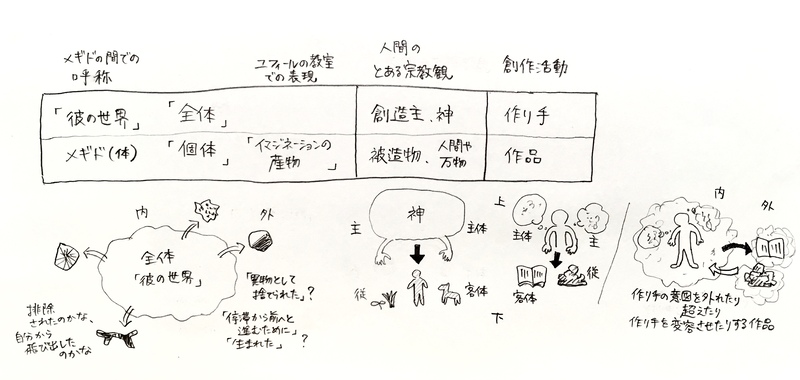 メギドの間での
呼称
ユフィールの教室
での表現
人間の
とある宗教観
創作活動
「彼の世界」
「全体」
創造主、神
作り手
メギド(体)
「個体」
「イマジネーションの
産物」
被造物、
人間や
万物
作品
内
外
全体
「彼の世界」
「異物として
捨てられた」?
「停滞から前へと
進むために」
「生まれた」?
排除
されたのかな、
自分から
飛び出した
のかな
神
主
主体
従
客体
上
下
主体
主
客体
従
内
外
作り手の意図を外れたり
超えたり
作り手を変容させたりする作品